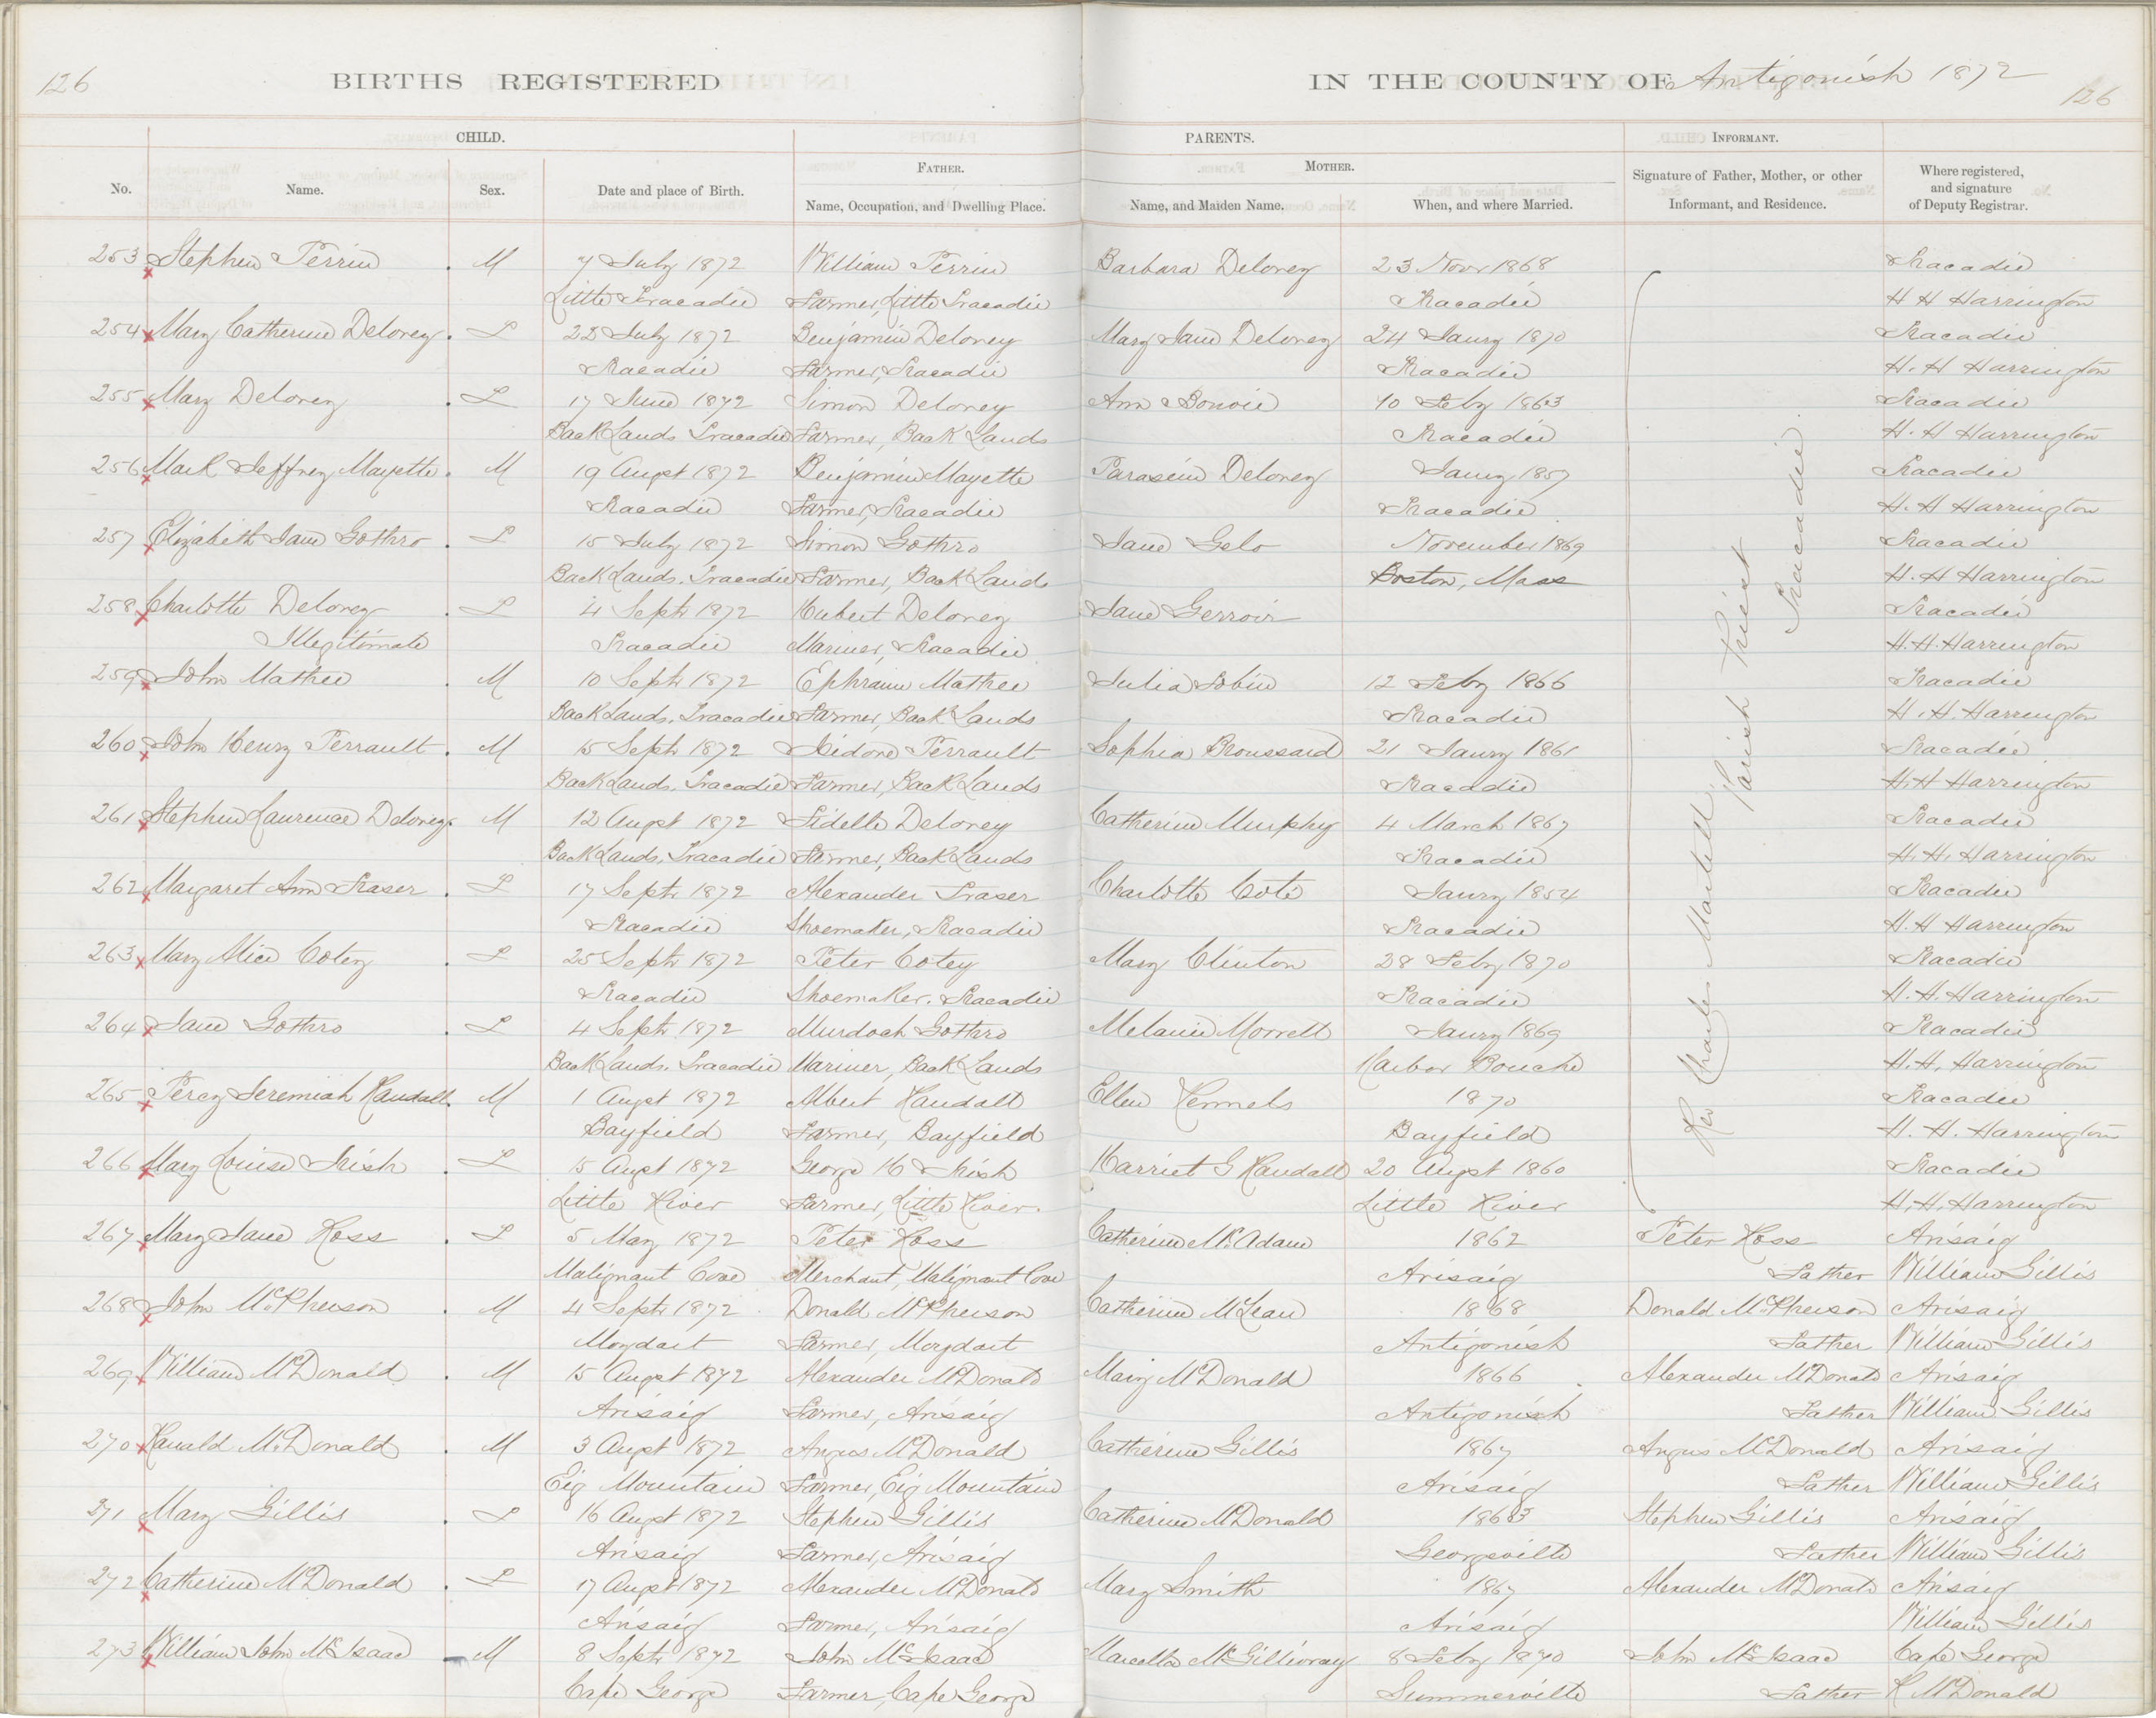 126
BIRTHS REGISTERED
IN THE COUNTY OF Antigonish 1872
126
CHILD.
PARENTS.
INFORMANT.
No.
Name.
Sex.
Date and place of Birth.
FATHER.
Name, Occupation, and Dwelling Place.
MOTHER.
Name, and Maiden Name.
When, and where Married.
Signature of Father, Mother, or other
Informant, and Residence.
Where registered,
and signature
of Deputy Registrar.
253 Stephen Perrin . M 7 July 1872 William Perrin Barbara Deloney 23 Novr 1868 Tracadie
Little Tracadie Farmer, Little Tracadie Tracadie H H Harrington
254 Mary Catherine Deloney . F 22 July 1872 Benjamin Deloney Mary Jane Deloney 24 Jany 1870 Tracadie
Tracadie Farmer, Tracadie Tracadie H. H Harrington
255 Mary Deloney . F 17 June 1872 Simon Deloney Ann Bonvie 10 Feby 1863 Tracadie
Back Lands Tracadie Farmer, Back Lands Tracadie H. H Harrington
256 Mark Jeffrey Mayette . M 19 Augst 1872 Benjamin Mayette Deloney Jany 1857 Tracadie
Tracadie Farmer, Tracadie Tracadie H. H Harrington
257 Elizabeth Jane Gothro . F 15 July 1872 Simon Gothro Jane Gelo November 1869 Tracadie
Back Lands, Tracadie Farmer, Back Lands Boston, Mass H. H Harrington
258 Charlotte Deloney . F 4 Septr 1872 Hubert Deloney Jane Gerroir Tracadie
Illegitimate Tracadie Mariner, Tracadie H. H. Harrington
259 John Mathee . M 10 Septr 1872 Ephraim Mathee Julia Tobin 12 Feby 1866 Tracadie
Back Lands, Tracadie Farmer, Back Lands Tracadie H. H. Harrington
260 John Henry Perrault . M 15 Septr 1872 Isidore Perrault Sophia Broussard 21 Jany 1861 Tracadie
Back Lands, Tracadie Farmer, Back Lands Tracadie H. H Harrington
261 Stephen Laurence Deloney . M 12 Augst 1872 Fidelle Deloney Catherine Murphy 4 March 1867 Tracadie
Back Lands, Tracadie Farmer, Back Lands Tracadie H. H. Harrington
262 Margaret Ann Fraser . F 17 Septr 1872 Alexander Fraser Charlotte Coté Jany 1854 Tracadie
Tracadie Shoemaker, Tracadie Tracadie H. H Harrington
263 Mary Alice Cotey . F 25 Septr 1872 Peter Cotey Mary Clinton 28 Feby 1870 Tracadie
Tracadie Shoemaker. Tracadie Tracadie H. H. Harrington
264 Jane Gothro . F 4 Septr 1872 Murdoch Gothro Melanie Morrell Jany 1869 Tracadie
Back Lands. Tracadie Mariner, Back Lands Harbor Bouche H. H. Harrington
265 Percy Jeremiah Randall . M 1 Augst 1872 Albert Randall Ellen Kennels 1870 Tracadie
Bayfield Farmer, Bayfield Bayfield H. H. Harrington
266 Mary Louise Irish . F 15 Augst 1872 George H Irish Harriet G Randall 20 Augst 1860 Tracadie
Little River Farmer, Little River. Little River H. H. Harrington
Rev Charles Martell, Parish Priest
Tracadie.
267 Mary Jane Ross . F 5 May 1872 Peter Ross Catherine McAdam 1862 Peter Ross Arisaig
Malignant Cove Merchant, Malignant Cove Arisaig Father William Gillis
268 John McPherson . M 4 Septr 1872 Donald McPherson Catherine McLean 1868 Donald McPherson Arisaig
Moydart Farmer, Moydart Antigonish Father William Gillis
269 William McDonald . M 15 Augst 1872 Alexander McDonald Mary McDonald 1866 Alexander McDonald Arisaig
Arisaig Farmer, Arisaig Antigonish Father William Gillis
270 Ranald McDonald . M 3 Augst 1872 Angus McDonald Catherine Gillis 1867 Angus McDonald Arisaig
Eig Mountain Farmer, Eig Mountain Arisaig Father William Gillis
271 Mary Gillis . F 16 Augst 1872 Stephen Gillis Catherine McDonald 1863 Stephen Gillis Arisaig
Arisaig Farmer, Arisaig Georgeville Father William Gillis
272 Catherine McDonald . F 17 Augst 1872 Alexander McDonald Mary Smith 1867 Alexander McDonald Arisaig
Arisaig Farmer, Arisaig Arisaig William Gillis
273 William John McIsaac M 8 Septr 1872 John McIsaac Marcella McGillivray 8 Feby 1870 John McIsaac Cape George
Cape George Farmer, Cape George Summerville Father R McDonald